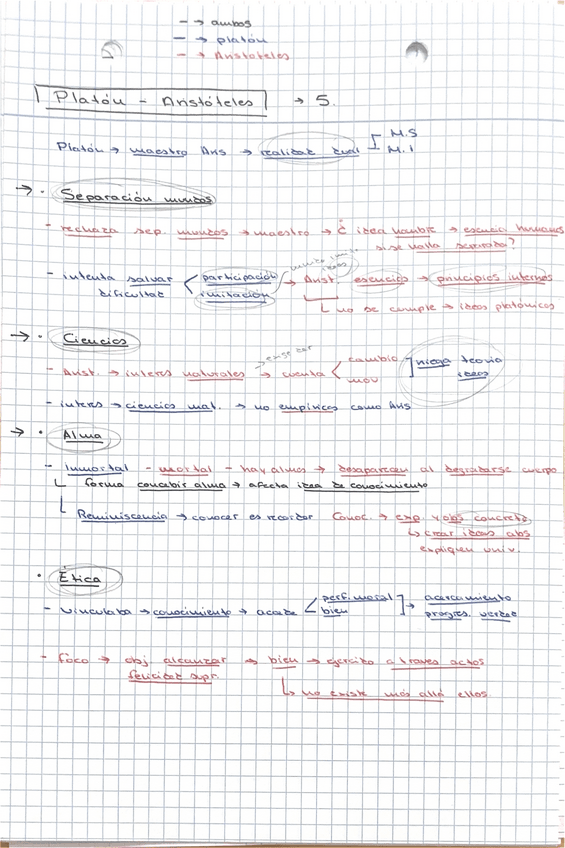 – → ambos
– → platón
– → Aristóteles
Platón – Aristóteles → 5.
Platón → maestro Aris → realidad dual M.S
M.I
→ · Separación mundos
- rechaza sep. mundos → maestro → ¿ idea hombre → esencia humanos
si se halla separado?
- intenta salvar dificultad participación imitación → Arist. esencias → principios internos
↳ no se cumple → ideas platónicas
→ · Ciencias
- Arist. → interes naturales → cuenta cambio mov niega teoría ideas
- interes → ciencias mat. → no empíricas como Aris
→ · Alma
- Inmortal - mortal - hay almas → desaparecen al degradarse cuerpo
↳ forma concebir alma → afecta idea de conocimiento
↳ Reminiscencia → conocer es recordar Conoc. → exp. y obs concreta
↳ crear ideas abs
expliquen univ.
· Ética
- vinculaba → conocimiento → accede perf. moral bien → acercamiento
progres. verdad
- foco → obj alcanzar felicidad supr. → bien → ejercito a traves actos
↳ no existe más allá ellos